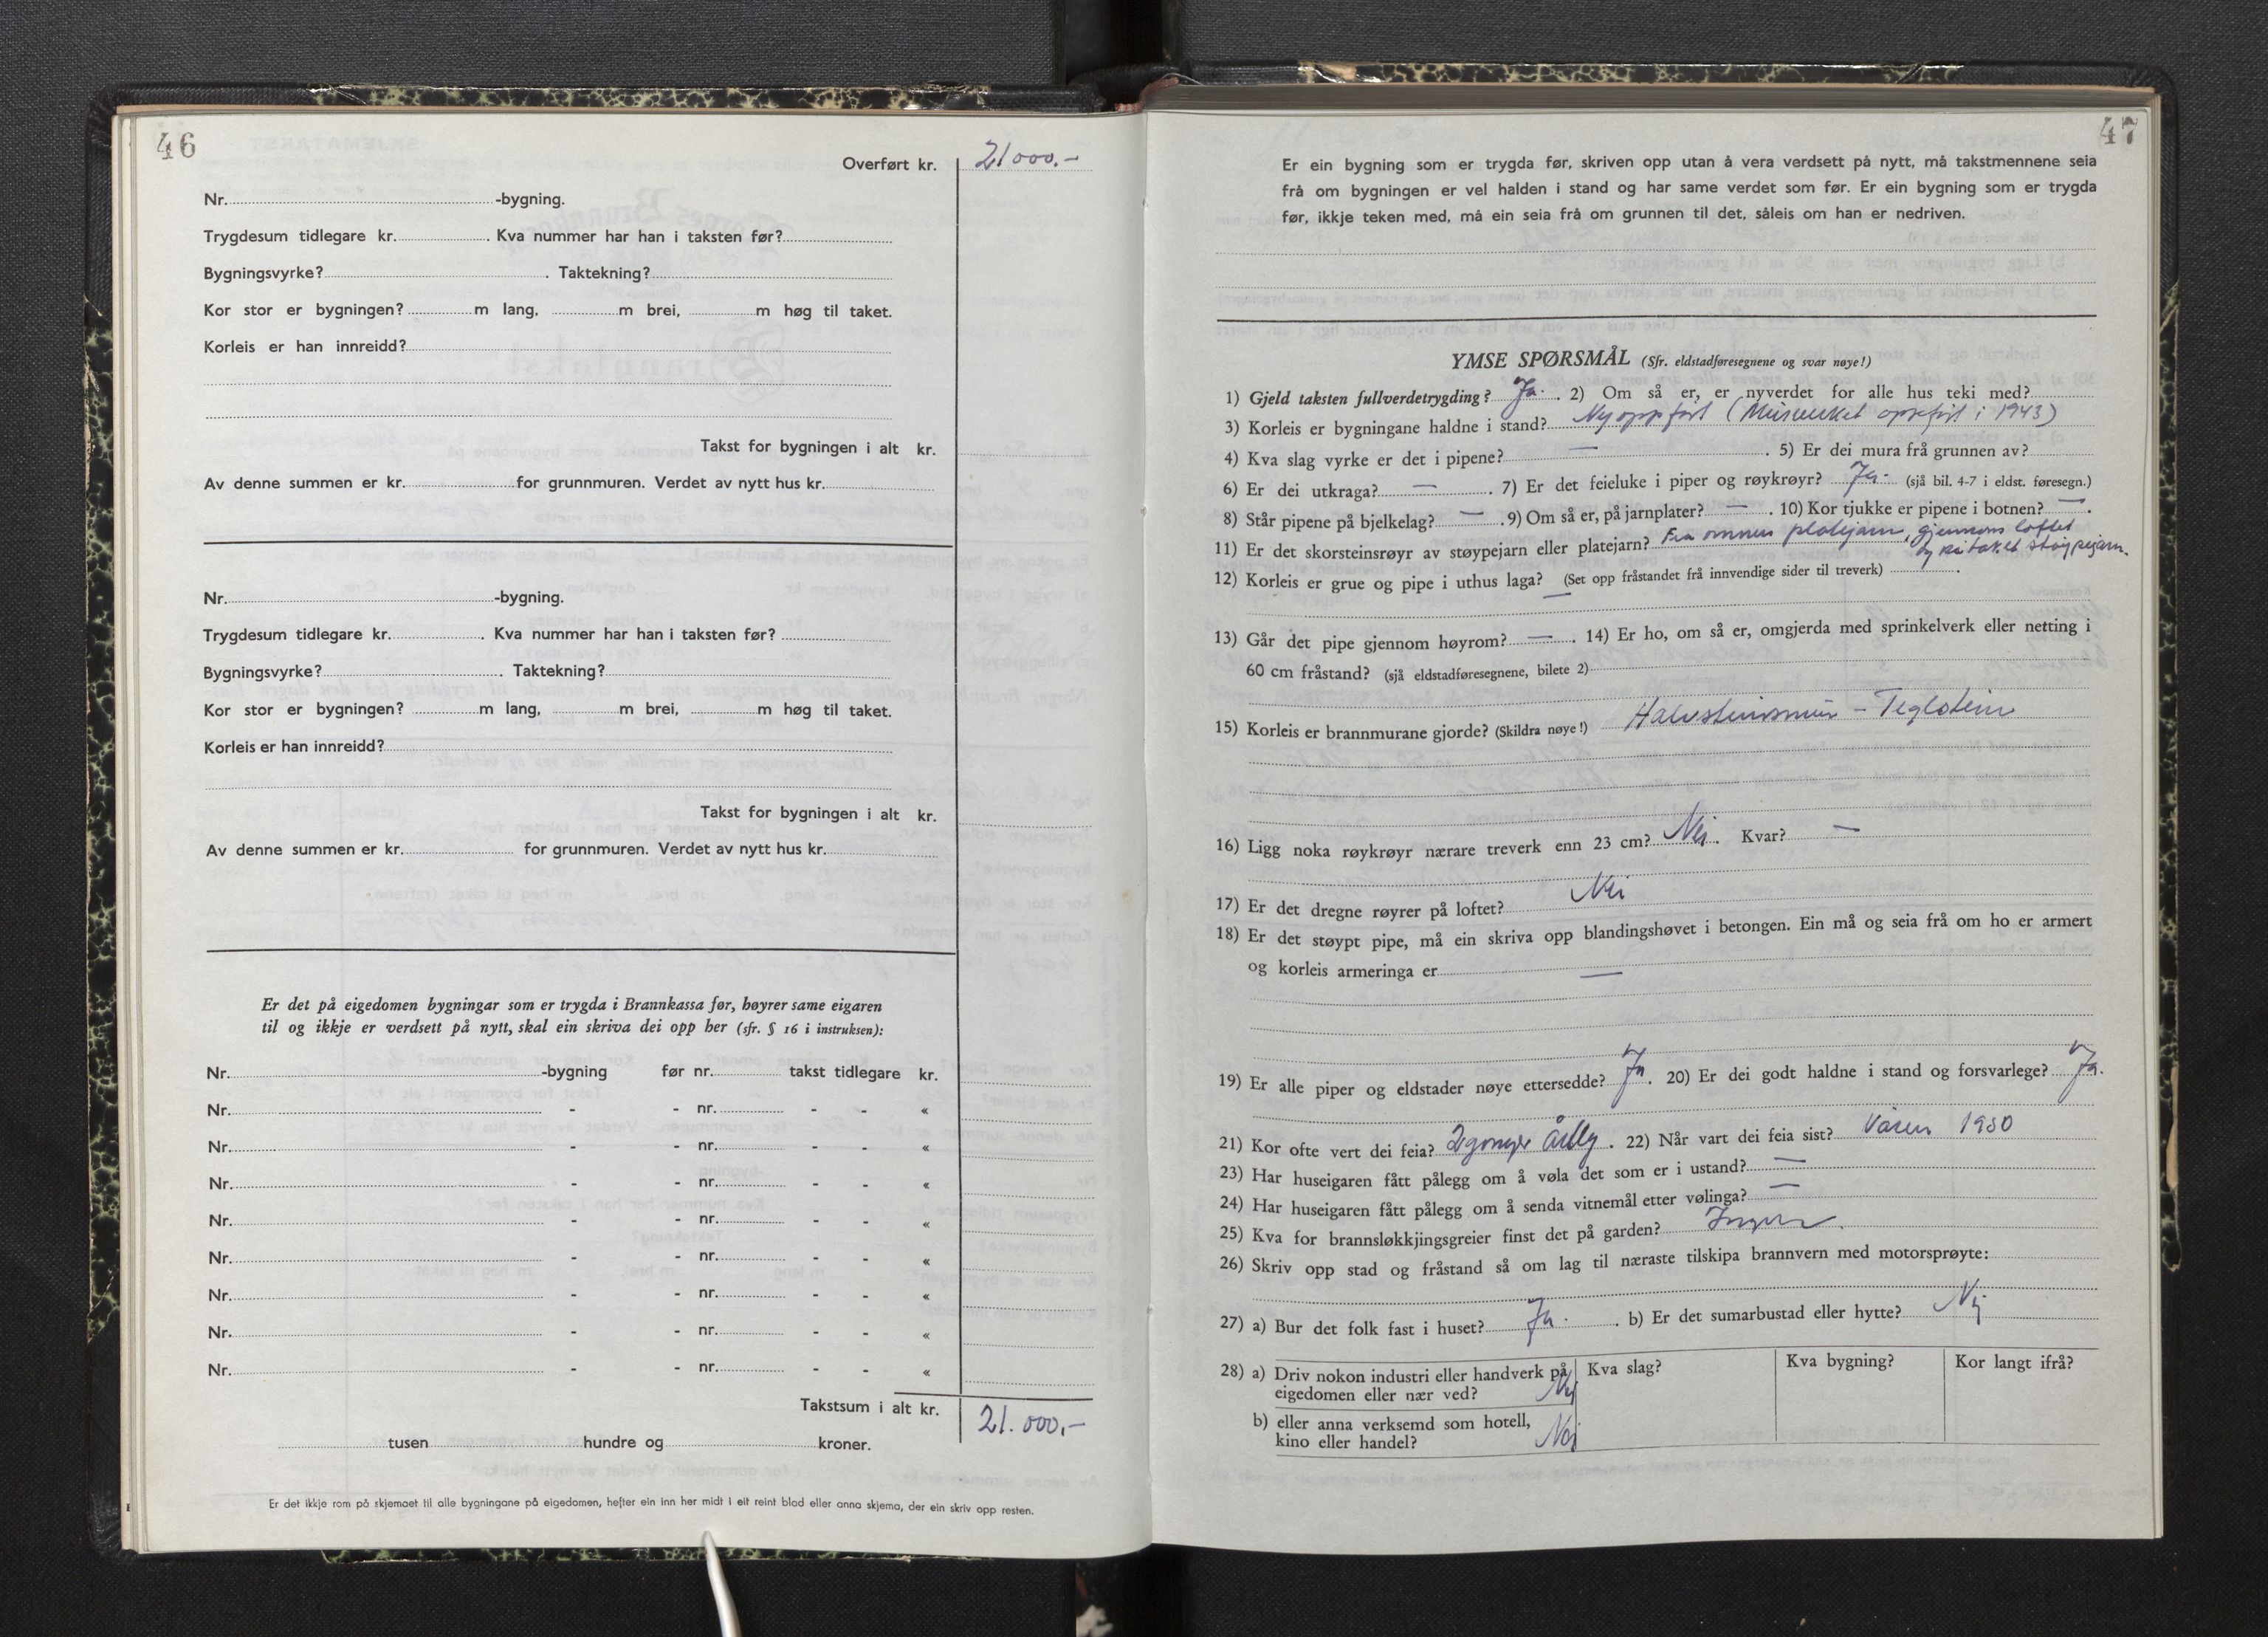 46
Overført kr. 21000.-
Nr. -bygning.
Trygdesum tidlegare kr. . Kva nummer har han i taksten før?
Bygningsvyrke? . Taktekning?
Kor stor er bygningen? m lang, m brei, m høg til taket.
Korleis er han innreidd?
Takst for bygningen i alt kr.
Av denne summen er kr. for grunnmuren. Verdet av nytt hus kr.
Nr. -bygning.
Trygdesum tidlegare kr. . Kva nummer har han i taksten før?
Bygningsvyrke? . Taktekning?
Kor stor er bygningen? m lang, m brei, m høg til taket.
Korleis er han innreidd?
Takst for bygningen i alt kr.
Av denne summen er kr. for grunnmuren. Verdet av nytt hus kr.
Er det på eigedomen bygningar som er trygda i Brannkassa før, høyrer same eigaren
til og ikkje er verdsett på nytt, skal ein skriva dei opp her (sfr. § 16 i instruksen):
Nr. -bygning før nr. takst tidlegare kr.
Nr. - - nr. - - «
Nr. - - nr. - - «
Nr. - - nr. - - «
Nr. - - nr. - - «
Nr. - - nr. - - «
Nr. - - nr. - - «
Nr. - - nr. - - «
Nr. - - nr. - - «
Takstsum i alt kr. 21.000,-
tusen hundre og kroner.
Er det ikkje rom på skjemaet til alle bygningane på eigedomen, hefter ein inn her midt i eit reint blad eller anna skjema, der ein skriv opp resten.
47
Er ein bygning som er trygda før, skriven opp utan å vera verdsett på nytt, må takstmennene seia
frå om bygningen er vel halden i stand og har same verdet som før. Er ein bygning som er trygda
før, ikkje teken med, må ein seia frå om grunnen til det, såleis om han er nedriven.
YMSE SPØRSMÅL (Sfr. eldstadføresegnene og svar nøye!)
1) Gjeld taksten fullverdetrygding? Ja. . 2) Om så er, er nyverdet for alle hus teki med?
3) Korleis er bygningane haldne i stand? Nyoppført (Murverket oppført i 1943)
4) Kva slag vyrke er det i pipene? — . 5) Er dei mura frå grunnen av?
6) Er dei utkraga? — . 7) Er det feieluke i piper og røykrøyr? Ja. (sjå bil. 4-7 i eldst. føresegn.)
8) Står pipene på bjelkelag? — . 9) Om så er, på jarnplater? — . 10) Kor tjukke er pipene i botnen? — .
11) Er det skorsteinsrøyr av støypejarn eller platejarn? Fra omnen platejarn, gjennom loftet
og på taket støypejarn.
12) Korleis er grue og pipe i uthus laga? (Set opp fråstandet frå innvendige sider til treverk) .
—
13) Går det pipe gjennom høyrom? — . 14) Er ho, om så er, omgjerda med sprinkelverk eller netting i
60 cm fråstand? (sjå eldstadføresegnene, bilete 2)
15) Korleis er brannmurane gjorde? (Skildra nøye!) Halvsteinsmur - Teglstein
16) Ligg noka røykrøyr nærare treverk enn 23 cm? Nei. Kvar? —
17) Er det dregne røyrer på loftet? Nei
18) Er det støypt pipe, må ein skriva opp blandingshøvet i betongen. Ein må og seia frå om ho er armert
og korleis armeringa er —
19) Er alle piper og eldstader nøye ettersedde? Ja. 20) Er dei godt haldne i stand og forsvarlege? Ja.
21) Kor ofte vert dei feia? 2 gonger årleg. 22) Når vart dei feia sist? Våren 1950
23) Har huseigaren fått pålegg om å vøla det som er i ustand? —
24) Har huseigaren fått pålegg om å senda vitnemål etter vølinga? —
25) Kva for brannsløkkjingsgreier finst det på garden? Ingen.
26) Skriv opp stad og fråstand så om lag til næraste tilskipa brannvern med motorsprøyte:
27) a) Bur det folk fast i huset? Ja. . b) Er det sumarbustad eller hytte? Nei
28) a) Driv nokon industri eller handverk på Kva slag? Kva bygning? Kor langt ifrå?
eigedomen eller nær ved? Nei
b) eller anna verksemd som hotell,
kino eller handel? Nei